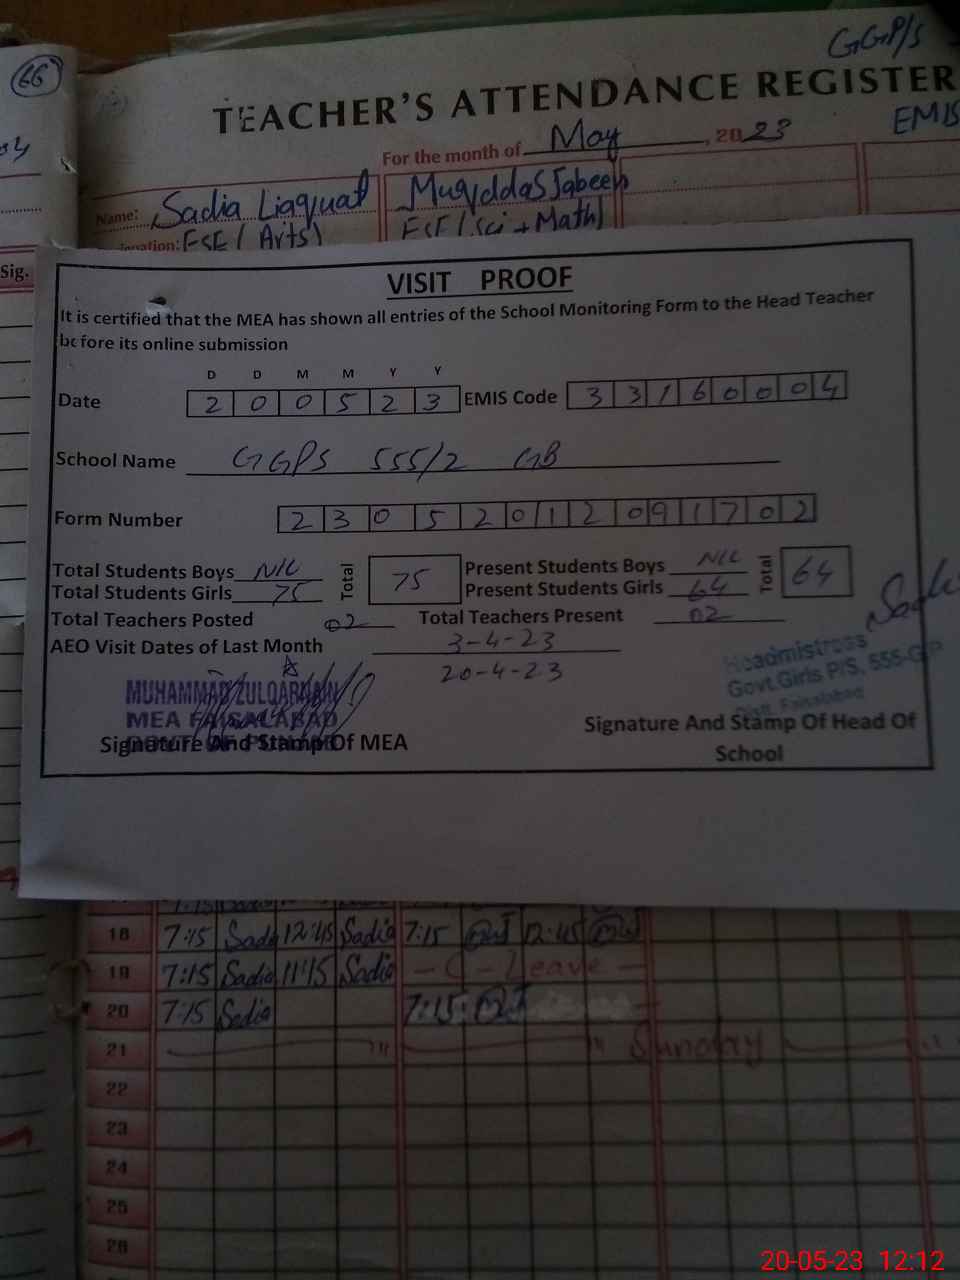 66
GGP/S
TEACHER'S ATTENDANCE REGISTER
EMIS
For the month of May, 2023
Name: Sadia Liaquat Muqddas Jabeen
nation: ESE (Arts) ESE (Sci + Math)
Sig.
VISIT PROOF
It is certified that the MEA has shown all entries of the School Monitoring Form to the Head Teacher
before its online submission
D D M M Y Y
Date 2 0 0 5 2 3 EMIS Code 3 3 1 6 0 0 0 4
School Name GGPS 555/2 GB
Form Number 2 3 0 5 2 0 1 2 0 9 1 7 0 2
Total Students Boys NIL Total 75 Present Students Boys NIL Total 64
Total Students Girls 75 Present Students Girls 64
Total Teachers Posted 02 Total Teachers Present 02
AEO Visit Dates of Last Month 3-4-23
20-4-23
Sadia
MUHAMMAD ZULQARNAIN
MEA FAISALABAD
Headmistress
Govt. Girls P/S, 555-G/P
Distt. Faisalabad
Signature And Stamp Of MEA
Signature And Stamp Of Head Of
School
18 7:15 Sadia 12:45 Sadia 7:15 12:45
19 7:15 Sadia 11:15 Sadia - C - Leave -
20 7:15 Sadia 7:15
21 " " Sunday " "
22
23
24
25
26
20-05-23 12:12